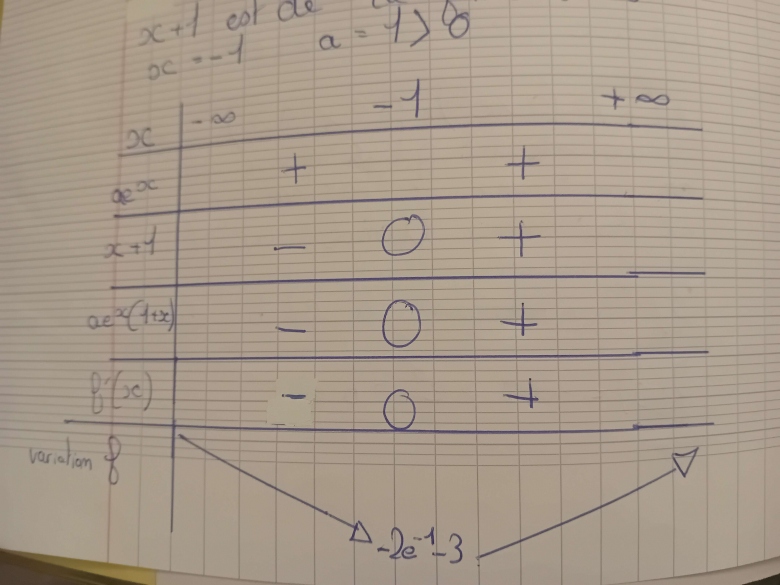 x+1 est de
x = -1 a = 1 > 0
x -∞ -1 +∞
aeˣ + +
x+1 - 0 +
aeˣ(1+x) - 0 +
f'(x) - 0 +
variation f
-2e⁻¹-3